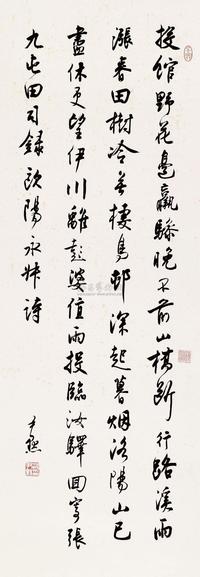 投館野花邊羸驂晚不前山橋斷行路溪雨
漲春田樹冷無棲鳥邨深起暮烟洛陽山已
盡休更望伊川離彭婆值雨投臨汝驛回寄張
九屯田司錄歐陽永叔詩
尹默